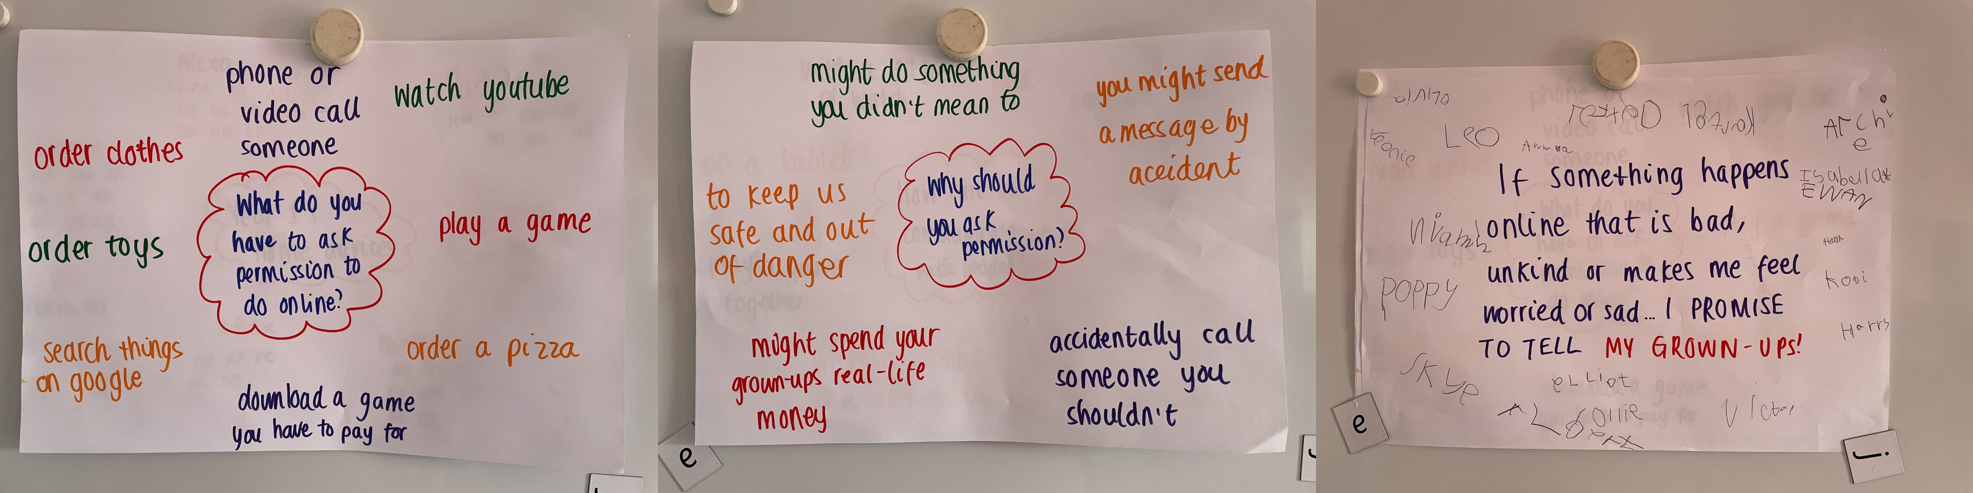 phone or
video call
someone
watch youtube
order clothes
What do you
have to ask
permission to
do online?
order toys
play a game
search things
on google
order a pizza
download a game
you have to pay for
might do something
you didn't mean to
you might send
a message by
accident
to keep us
safe and out
of danger
why should
you ask
permission?
might spend your
grown-ups real-life
money
accidentally call
someone you
shouldn't
e
olivia
Leo
Archi
e
Isabella
EWAN
If something happens
online that is bad,
unkind or makes me feel
worried or sad... I PROMISE
TO TELL MY GROWN-UPS!
Niamh
POPPY
Kooi
Harrs
SKye
eLLiot
ollie
e